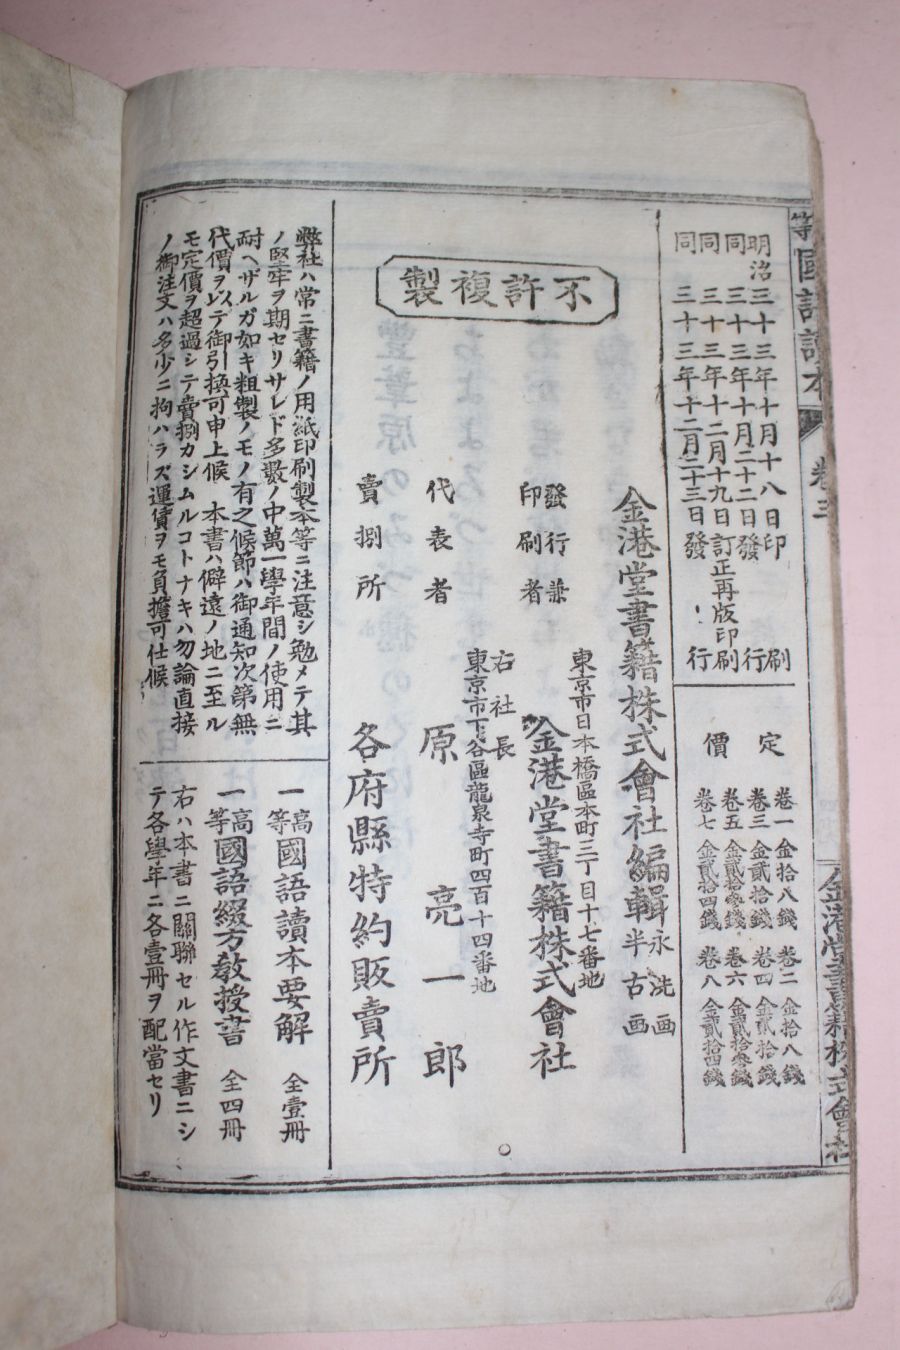 等國語讀本 卷三
金港堂書籍株式會社
明治三十三年十月十八日印刷
同三十三年十月二十二日發行
同三十三年十二月十九日訂正再版印刷
同三十三年十二月二十三日發行
定價
卷一金拾八錢 卷二金拾八錢
卷三金貳拾錢 卷四金貳拾錢
卷五金貳拾參錢 卷六金貳拾參錢
卷七金貳拾四錢 卷八金貳拾四錢
不許複製
金港堂書籍株式會社編輯 永洗画 半古画
東京市日本橋區本町三丁目十七番地
發行兼印刷者 金港堂書籍株式會社
右社長
東京市下谷區龍泉寺町四百十四番地
代表者 原亮一郎
賣捌所 各府縣特約販賣所
弊社ハ常ニ書籍ノ用紙印刷製本等ニ注意シ勉メテ其
ノ堅牢ヲ期セリサレド多數ノ中萬一學年間ノ使用ニ
耐ヘザルガ如キ粗製ノモノ有之候節ハ御通知次第無
代價ヲ以テ御引換可申上候 本書ハ僻遠ノ地ニ至ル
モ定價ヲ超過シテ賣捌カシムルコトナキハ勿論直接
ノ御注文ハ多少ニ拘ハラズ運賃ヲモ負擔可仕候
一高等國語讀本要解 全壹冊
一高等國語綴方敎授書 全四冊
右ハ本書ニ關聯セル作文書ニシ
テ各學年ニ各壹冊ヲ配當セリ